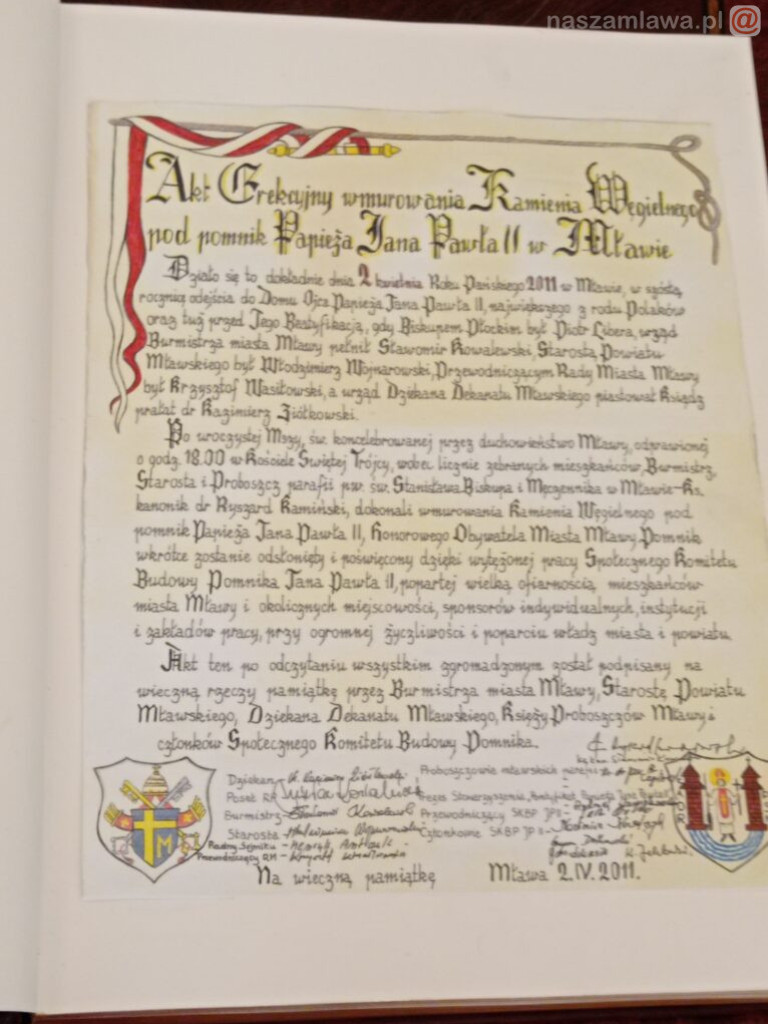 naszamlawa.pl @
Akt Erekcyjny wmurowania Kamienia Węgielnego
pod pomnik Papieża Jana Pawła II w Mławie
Działo się to dokładnie dnia 2 kwietnia Roku Pańskiego 2011 w Mławie, w szóstą
rocznicę odejścia do Domu Ojca Papieża Jana Pawła II, największego z rodu Polaków
oraz tuż przed Jego Beatyfikacją, gdy Biskupem Płockim był Piotr Libera, urząd
Burmistrza miasta Mławy pełnił Sławomir Kowalewski, Starostą Powiatu
Mławskiego był Włodzimierz Wojnarowski, Przewodniczącym Rady Miasta Mławy
był Krzysztof Wasiłowski, a urząd Dziekana Dekanatu Mławskiego piastował Ksiądz
prałat dr Kazimierz Ziółkowski.
Po uroczystej Mszy św. koncelebrowanej przez duchowieństwo Mławy, odprawionej
o godz. 18.00 w Kościele Świętej Trójcy, wobec licznie zebranych mieszkańców, Burmistrz,
Starosta i Proboszcz parafii pw. św. Stanisława Biskupa i Męczennika w Mławie-Ks.
kanonik dr Ryszard Kamiński, dokonali wmurowania Kamienia Węgielnego pod
pomnik Papieża Jana Pawła II, Honorowego Obywatela Miasta Mławy. Pomnik
wkrótce zostanie odsłonięty i poświęcony dzięki wytężonej pracy Społecznego Komitetu
Budowy Pomnika Jana Pawła II, popartej wielką ofiarnością mieszkańców
miasta Mławy i okolicznych miejscowości, sponsorów indywidualnych, instytucji
i zakładów pracy, przy ogromnej życzliwości i poparciu władz miasta i powiatu.
Akt ten po odczytaniu wszystkim zgromadzonym został podpisany na
wieczną rzeczy pamiątkę przez Burmistrza miasta Mławy, Starostę Powiatu
Mławskiego, Dziekana Dekanatu Mławskiego, Księży Proboszczów Mławy i
członków Społecznego Komitetu Budowy Pomnika.
Dziekan
Proboszczowie mławskich parafii
Poseł RP
Prezes Stowarzyszenia
Burmistrz
Przewodniczący SKBP JP II
Starosta
Członkowie SKBP JP II
Radny Sejmiku
Przewodniczący RM
M
Na wieczną pamiątkę Mława 2.IV.2011.